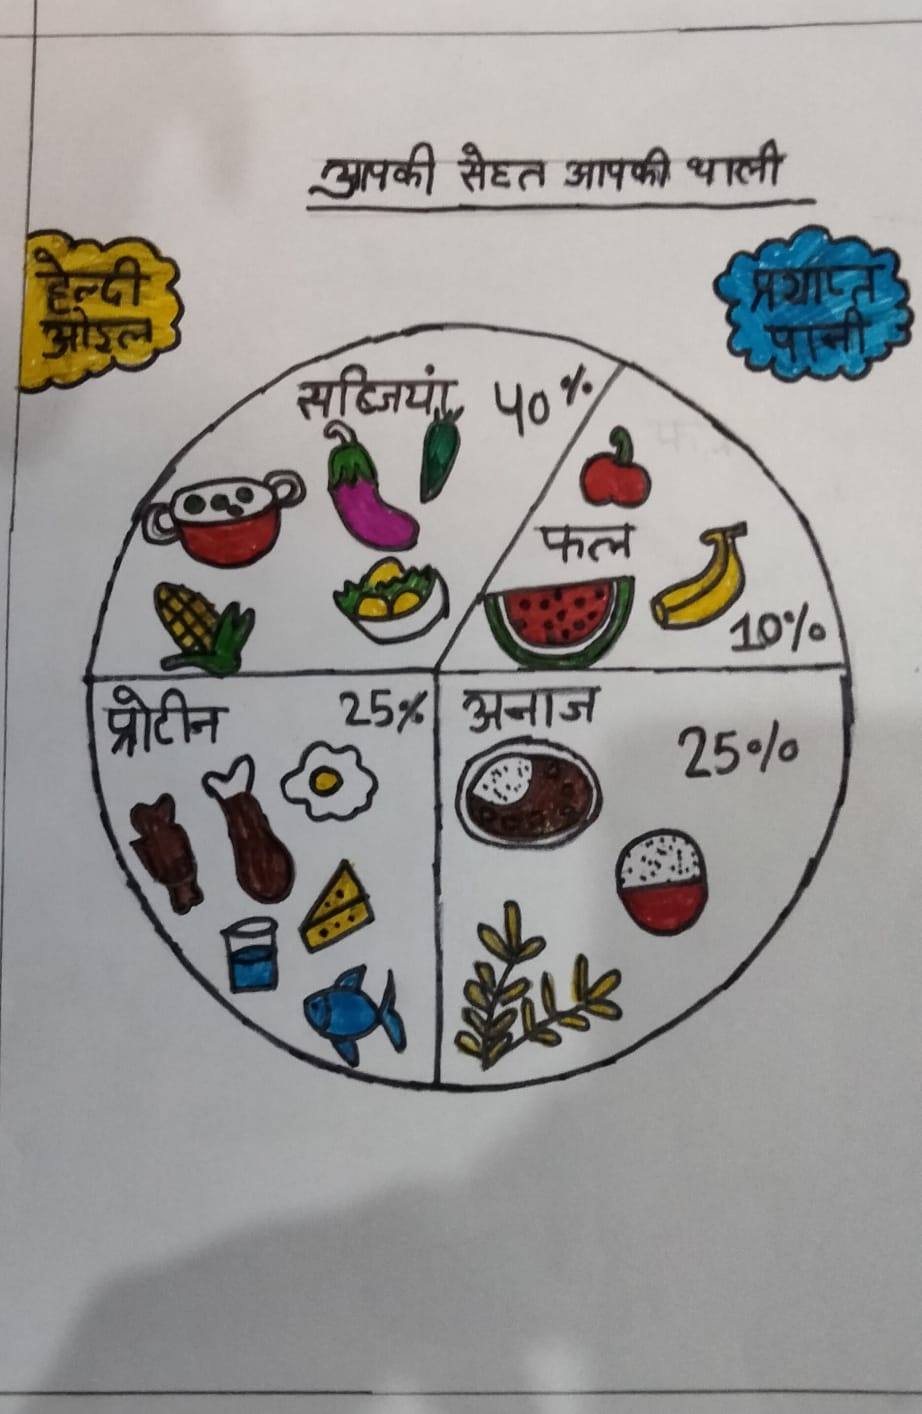 आपकी सेहत आपकी थाली
हेल्दी
ओइल
प्रयाप्त
पानी
सब्जियां 40%
फल
10%
प्रोटीन 25%
अनाज
25%